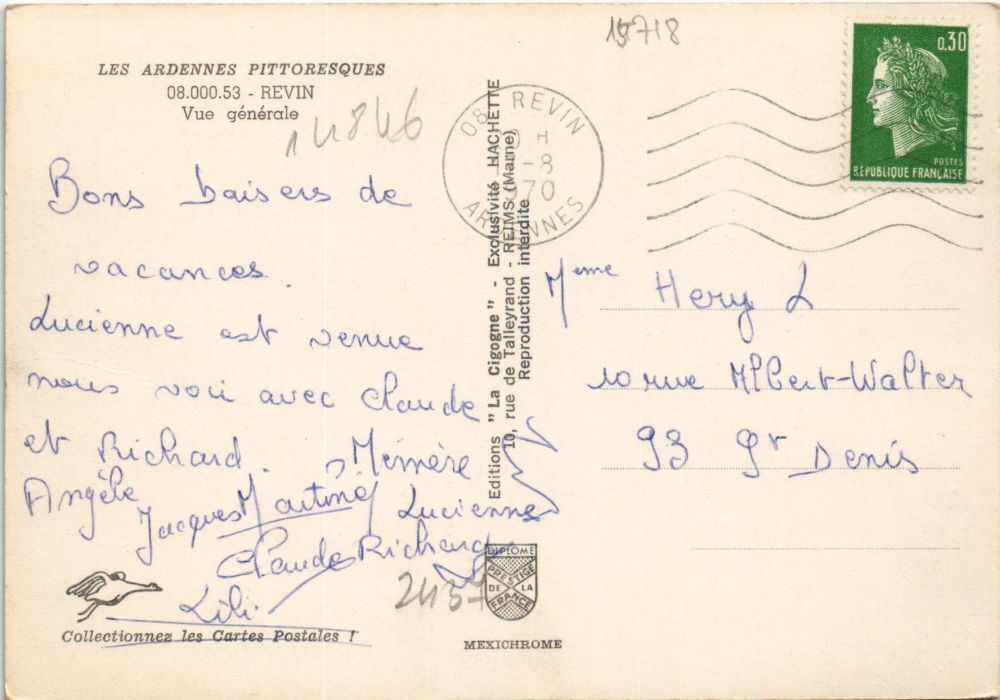 15718
LES ARDENNES PITTORESQUES
08.000.53 - REVIN
Vue générale
14846
Bons baisers de
vacances.
Lucienne est venue
nous voir avec Claude
et Richard. Mémère
Angèle
Jacques Martine Lucienne
Claude Richard
Lili
Collectionnez les Cartes Postales !
Editions "La Cigogne" - Exclusivité HACHETTE
10, rue de Talleyrand - REIMS (Marne)
Reproduction interdite
DIPLOME
PRESTIGE
DE LA
FRANCE
MEXICHROME
08 REVIN
H
-8
70
ARDENNES
0,30
POSTES
REPUBLIQUE FRANÇAISE
Meme Hery L
10 rue Albert-Walter
93 St Denis